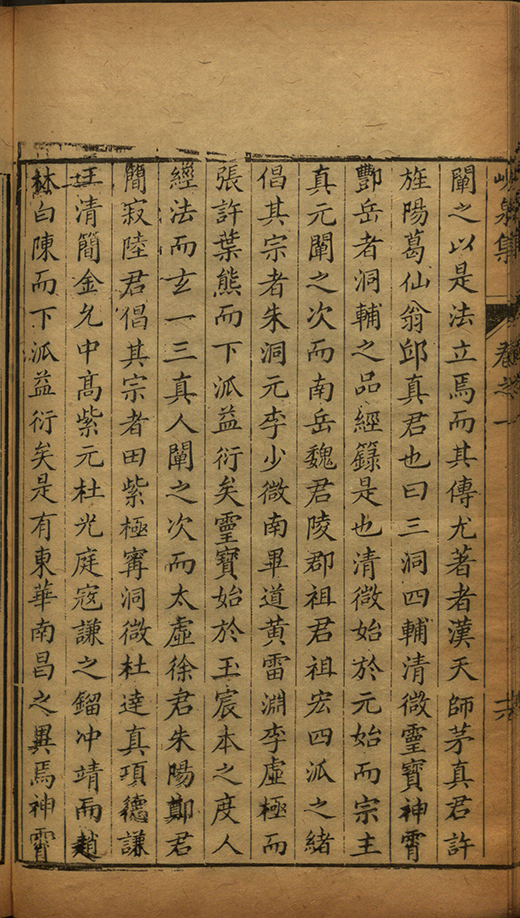 峴泉集 卷之一 六
闡之以是法立焉而其傳尤著者漢天師茅真君許
旌陽葛仙翁邱真君也曰三洞四輔清微靈寶神霄
酆岳者洞輔之品經籙是也清微始於元始而宗主
真元闡之次而南岳魏君陵郡祖君祖宏四派之緒
倡其宗者朱洞元李少微南畢道黃雷淵李虛極而
張許葉熊而下派益衍矣靈寶始於玉宸本之度人
經法而玄一三真人闡之次而太虛徐君朱陽鄭君
簡寂陸君倡其宗者田紫極甯洞微杜達真項德謙
王清簡金允中高紫元杜光庭寇謙之鎦冲靖而趙
林白陳而下派益衍矣是有東華南昌之異焉神霄